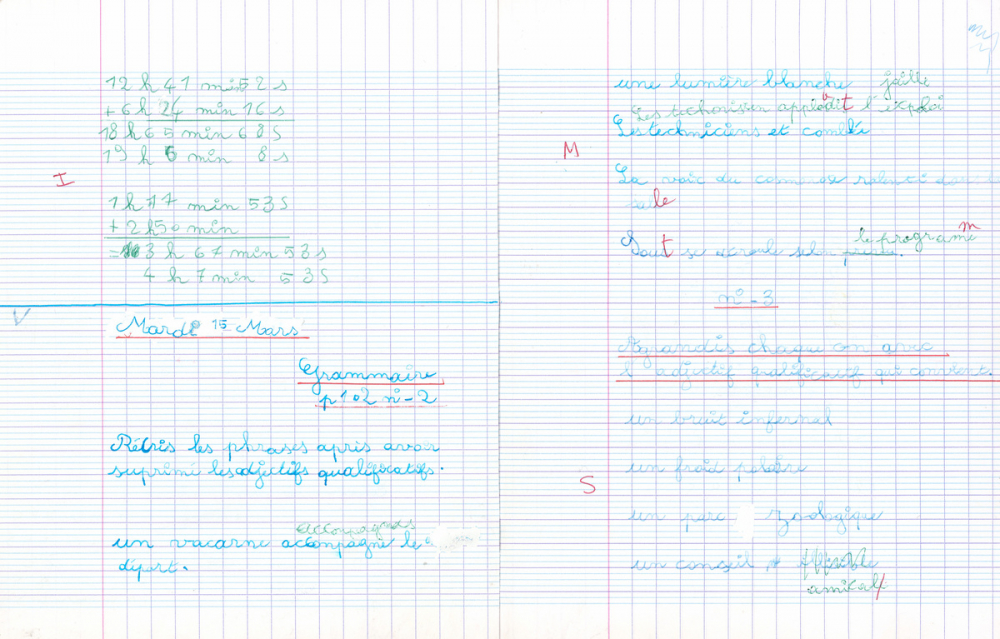 12 h 41 min 52 s
+ 6 h 24 min 16 s
18 h 65 min 68 s
19 h 6 min 8 s
I
1 h 17 min 53 s
+ 2 h 50 min
= 3 h 67 min 53 s
4 h 7 min 53 s
V
Mardi 15 Mars
Grammaire
p 102 n°-2
Récris les phrases après avoir
suprimé les adjectifs qualificatifs.
accompagnés
un vacarne accompagne le
départ.
une lumière blanche jaille
Les techonisien applodit l'exploi
Les techniciens et comblé
M
La voix du commose ralenti
le
le programe m
Tout se écroule selon
n°-3
Agrandis chaque con avec
l'adjectif qualificatif qui convient.
un bruit infernal
un froid polaire
S
un parc zoologique
un conseil
amical